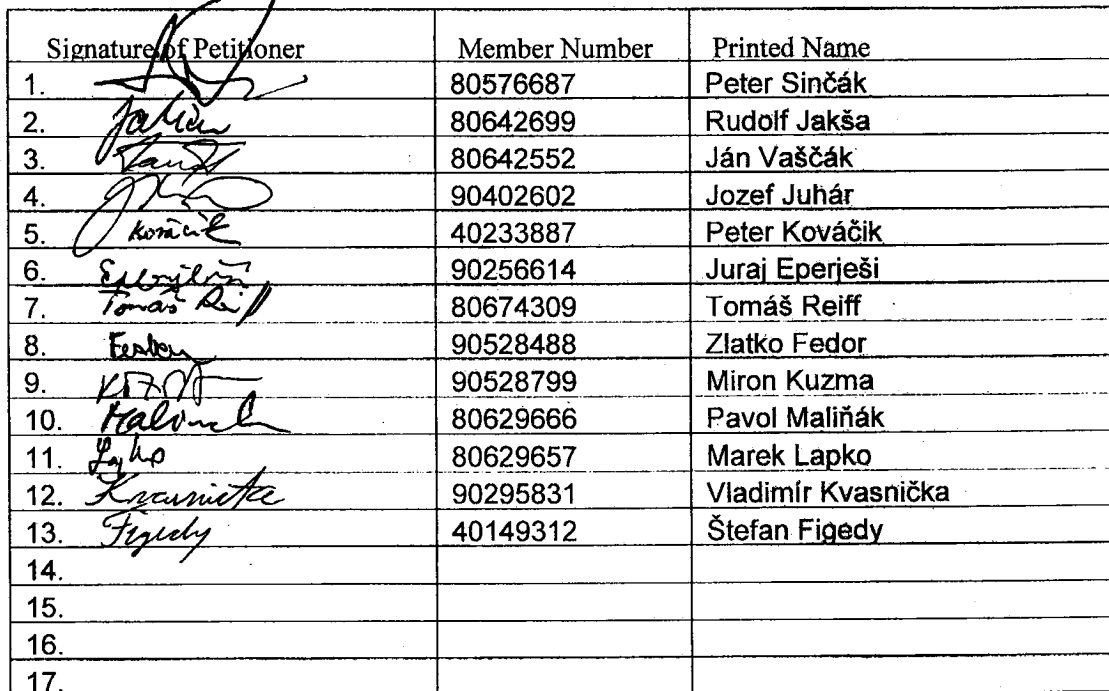 Signature of Petitioner Member Number Printed Name
1. 80576687 Peter Sinčák
2. 80642699 Rudolf Jakša
3. 80642552 Ján Vaščák
4. 90402602 Jozef Juhár
5. Kováčik 40233887 Peter Kováčik
6. 90256614 Juraj Eperješi
7. Tomáš Reiff 80674309 Tomáš Reiff
8. 90528488 Zlatko Fedor
9. 90528799 Miron Kuzma
10. 80629666 Pavol Maliňák
11. 80629657 Marek Lapko
12. 90295831 Vladimír Kvasnička
13. Figedy 40149312 Štefan Figedy
14.
15.
16.
17.